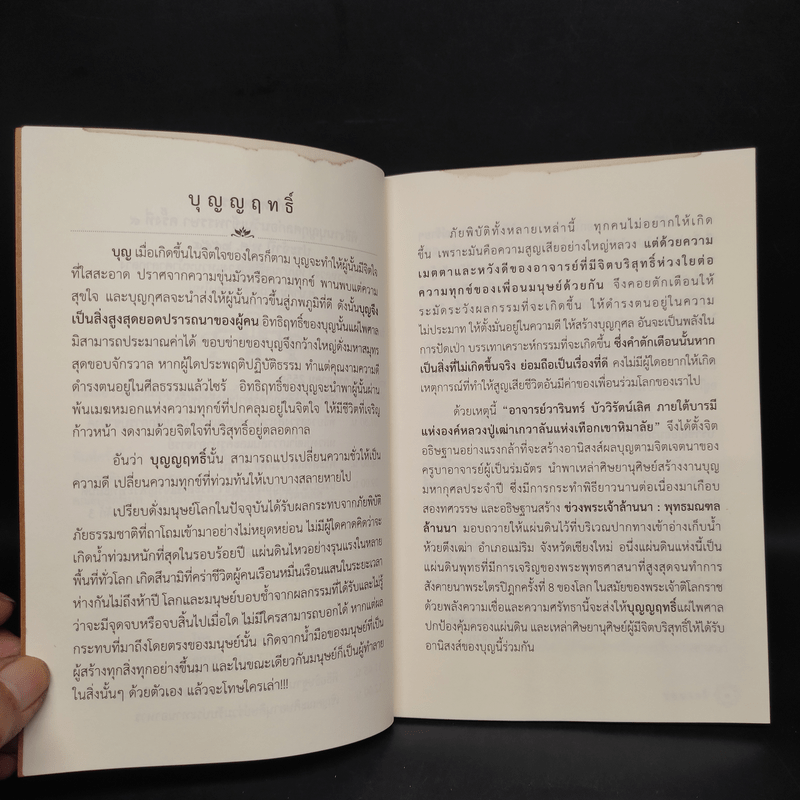 บุญญฤทธิ์
บุญ เมื่อเกิดขึ้นในจิตใจของใครก็ตาม บุญจะทำให้ผู้นั้นมีจิตใจ
ที่ใสสะอาด ปราศจากความขุ่นมัวหรือความทุกข์ พานพบแต่ความ
สุขใจ และบุญกุศลจะนำส่งให้ผู้นั้นก้าวขึ้นสู่ภพภูมิที่ดี ดังนั้นบุญจึง
เป็นสิ่งสูงสุดยอดปรารถนาของผู้คน อิทธิฤทธิ์ของบุญนั้นแผ่ไพศาล
มิสามารถประมาณค่าได้ ขอบข่ายของบุญจึงกว้างใหญ่ดั่งมหาสมุทร
สุดขอบจักรวาล หากผู้ใดประพฤติปฏิบัติธรรม ทำแต่คุณงามความดี
ดำรงตนอยู่ในศีลธรรมแล้วไซร้ อิทธิฤทธิ์ของบุญจะนำพาผู้นั้นผ่าน
พ้นเมฆหมอกแห่งความทุกข์ที่ปกคลุมอยู่ในจิตใจ ให้มีชีวิตที่เจริญ
ก้าวหน้า งดงามด้วยจิตใจที่บริสุทธิ์อยู่ตลอดกาล
อันว่า บุญญฤทธิ์นั้น สามารถแปรเปลี่ยนความชั่วให้เป็น
ความดี เปลี่ยนความทุกข์ที่ท่วมท้นให้เบาบางสลายหายไป
เปรียบดั่งมนุษย์โลกในปัจจุบันได้รับผลกระทบจากภัยพิบัติ
ภัยธรรมชาติที่ถาโถมเข้ามาอย่างไม่หยุดหย่อน ไม่มีผู้ใดคาดคิดว่าจะ
เกิดน้ำท่วมหนักที่สุดในรอบร้อยปี แผ่นดินไหวอย่างรุนแรงในหลาย
พื้นที่ทั่วโลก เกิดสึนามิที่คร่าชีวิตผู้คนเรือนหมื่นเรือนแสนในระยะเวลา
ห่างกันไม่ถึงห้าปี โลกและมนุษย์บอบช้ำจากผลกรรมที่ได้รับและไม่รู้
ว่าจะมีจุดจบหรือจบสิ้นไปเมื่อใด ไม่มีใครสามารถบอกได้ หากแต่ผล
กระทบที่มาถึงโดยตรงของมนุษย์นั้น เกิดจากน้ำมือของมนุษย์ที่เป็น
ผู้สร้างทุกสิ่งทุกอย่างขึ้นมา และในขณะเดียวกันมนุษย์ก็เป็นผู้ทำลาย
ในสิ่งนั้นๆ ด้วยตัวเอง แล้วจะโทษใครเล่า!!!
ภัยพิบัติทั้งหลายเหล่านี้ ทุกคนไม่อยากให้เกิด
ขึ้น เพราะมันคือความสูญเสียอย่างใหญ่หลวง แต่ด้วยความ
เมตตาและหวังดีของอาจารย์ที่มีจิตบริสุทธิ์ห่วงใยต่อ
ความทุกข์ของเพื่อนมนุษย์ด้วยกัน จึงคอยตักเตือนให้
ระมัดระวังผลกรรมที่จะเกิดขึ้น ให้ดำรงตนอยู่ในความ
ไม่ประมาท ให้ตั้งมั่นอยู่ในความดี ให้สร้างบุญกุศล อันจะเป็นพลังใน
การปัดเป่า บรรเทาเคราะห์กรรมที่จะเกิดขึ้น ซึ่งคำตักเตือนนั้นหาก
เป็นสิ่งที่ไม่เกิดขึ้นจริง ย่อมถือเป็นเรื่องที่ดี คงไม่มีผู้ใดอยากให้เกิด
เหตุการณ์ที่ทำให้สูญเสียชีวิตอันมีค่าของเพื่อนร่วมโลกของเราไป
ด้วยเหตุนี้ “อาจารย์วารินทร์ บัววิรัตน์เลิศ ภายใต้บารมี
แห่งองค์หลวงปู่เฒ่าเกวาลันแห่งเทือกเขาหิมาลัย” จึงได้ตั้งจิต
อธิษฐานอย่างแรงกล้าที่จะสร้างอานิสงส์ผลบุญตามจิตเจตนาของ
ครูบาอาจารย์ผู้เป็นร่มฉัตร นำพาเหล่าศิษยานุศิษย์สร้างงานบุญ
มหากุศลประจำปี ซึ่งมีการกระทำพิธียาวนานต่อเนื่องมาเกือบ
สองทศวรรษ และอธิษฐานสร้าง ข่วงพระเจ้าล้านนา : พุทธมณฑล
ล้านนา มอบถวายให้แผ่นดินไว้ที่บริเวณปากทางเข้าอ่างเก็บน้ำ
ห้วยตึงเฒ่า อำเภอแม่ริม จังหวัดเชียงใหม่ อนึ่งแผ่นดินแห่งนี้เป็น
แผ่นดินพุทธที่มีการเจริญของพระพุทธศาสนาที่สูงสุดจนทำการ
สังคายนาพระไตรปิฎกครั้งที่ 8 ของโลก ในสมัยของพระเจ้าติโลกราช
ด้วยพลังความเชื่อและความศรัทธานี้จะส่งให้บุญญฤทธิ์แผ่ไพศาล
ปกป้องคุ้มครองแผ่นดิน และเหล่าศิษยานุศิษย์ผู้มีจิตบริสุทธิ์ให้ได้รับ
อานิสงส์ของบุญนี้ร่วมกัน